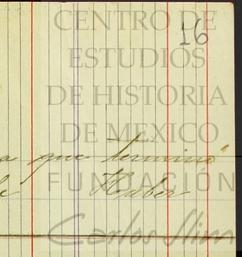 CENTRO DE
16
ESTUDIOS
DE HISTORIA
DE MEXICO
a que terminó
FUNDACIÓN
Huber
Carlos Slim